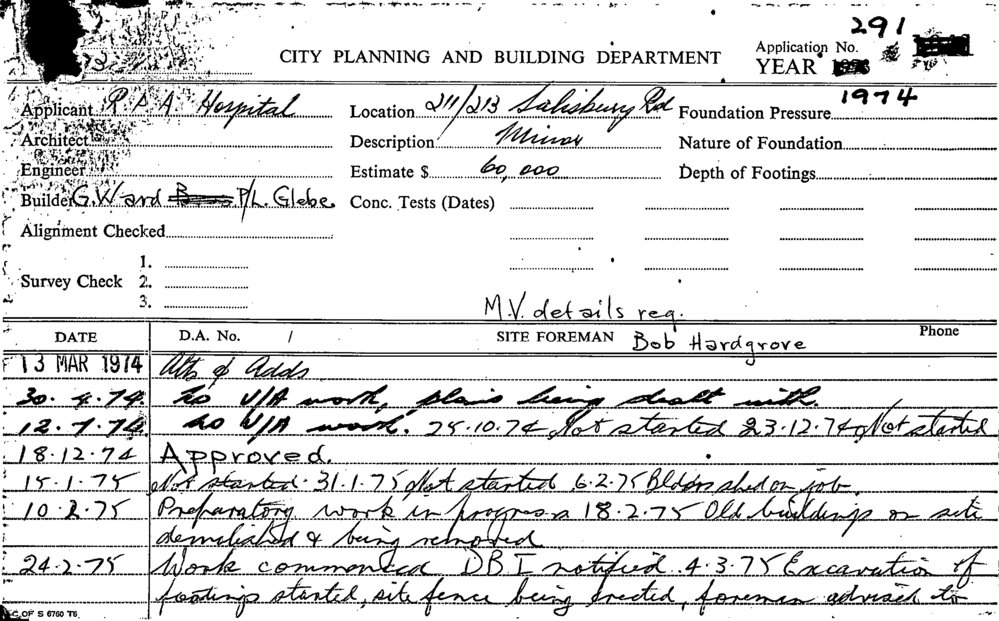 291
CITY PLANNING AND BUILDING DEPARTMENT
Application No.
YEAR
1974
Applicant R P A Hospital
Location 211/213 Salisbury Rd
Foundation Pressure
Architect
Description Minor
Nature of Foundation
Engineer
Estimate $ 60,000
Depth of Footings
Builder G. Ward P/L. Glebe.
Conc. Tests (Dates)
Alignment Checked
Survey Check
1.
2.
3.
M.V. details req.
DATE
D.A. No. /
SITE FOREMAN Bob Hardgrove
Phone
13 MAR 1974 Alts & Adds
30. 4. 74. No U/A work, plans being dealt with.
12. 7. 74. No U/A work. 25.10.74 Not started 23.12.74 Not started
18.12.74 Approved.
15.1.75 Not started. 31.1.75 Not started. 6.2.75 Bldrs shed on job.
10.2.75 Preparatory work in progress 18.2.75 Old buildings on site
demolished & being removed
24.2.75 Work commenced DBI notified. 4.3.75 Excavation of
footings started, site fence being erected, foreman advised to
C. OF S 6760 T6